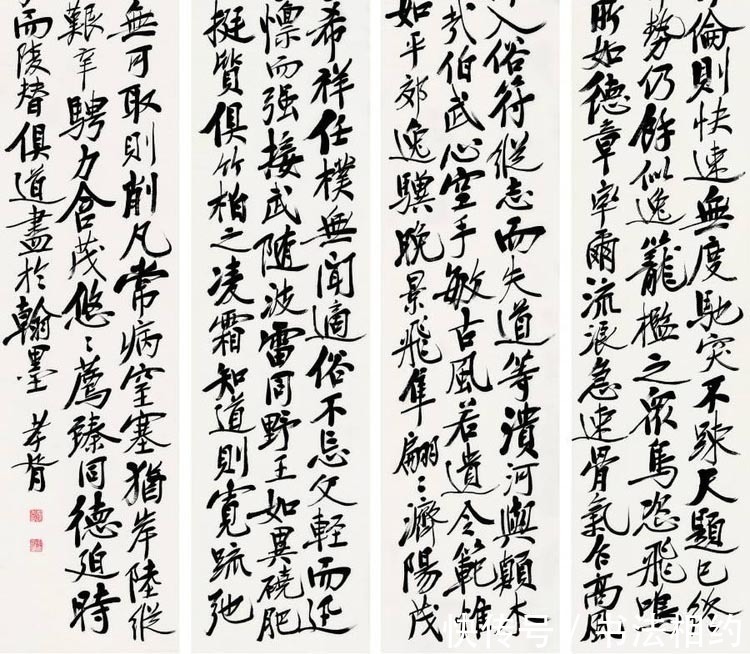 倫則快速無度馳突不踈尺題已終
勢仍餘似逸籠檻之眾馬恐飛鳴
所如德章率爾流浪急速骨氣乍高風
入俗符縱志而失道等潰河與顛木
伯武心空手敏古風若遺令範雖
如平郊逸驥晚景飛隼翩〻濟陽茂
希祥任樸無聞適俗不忘父輕而迅
懔而强接武隨波雷同野王如異磽肥
挺質俱竹柏之凌霜知道則寬疏弛
無可取則削凡常病窒塞猶岸陸縱
艱辛騁力含茂悠〻薦臻同德迫時
而陵替俱道盡於翰墨
快传号 / 书法相约